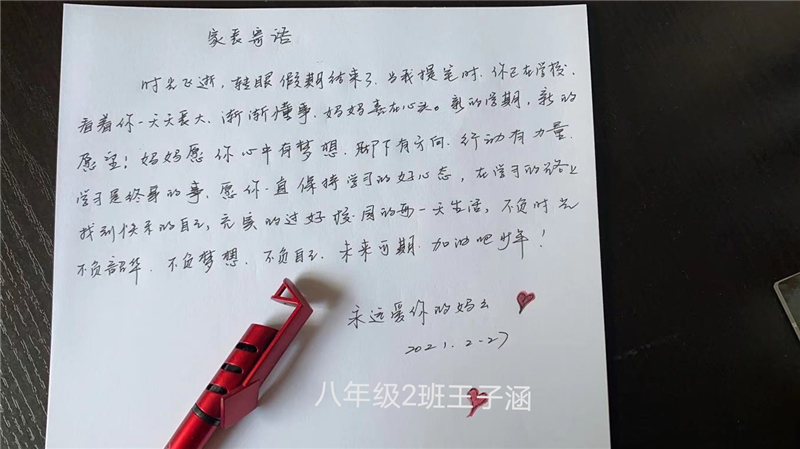 家长寄语
时光飞逝,转眼假期结束了.当我提笔时.你已在学校.
看着你一天天长大、渐渐懂事、妈妈喜在心头。新的学期,新的
愿望!妈妈愿你心中有梦想.脚下有方向.行动有力量.
学习是终身的事、愿你一直保持学习的好心态,在学习的路上
找到快乐的自己,充实的过好校园的每一天生活,不负时光
不负韶华.不负梦想.不负自己.未来可期.加油吧少年!
永远爱你的妈妈
2021.2-27
八年级2班王子涵